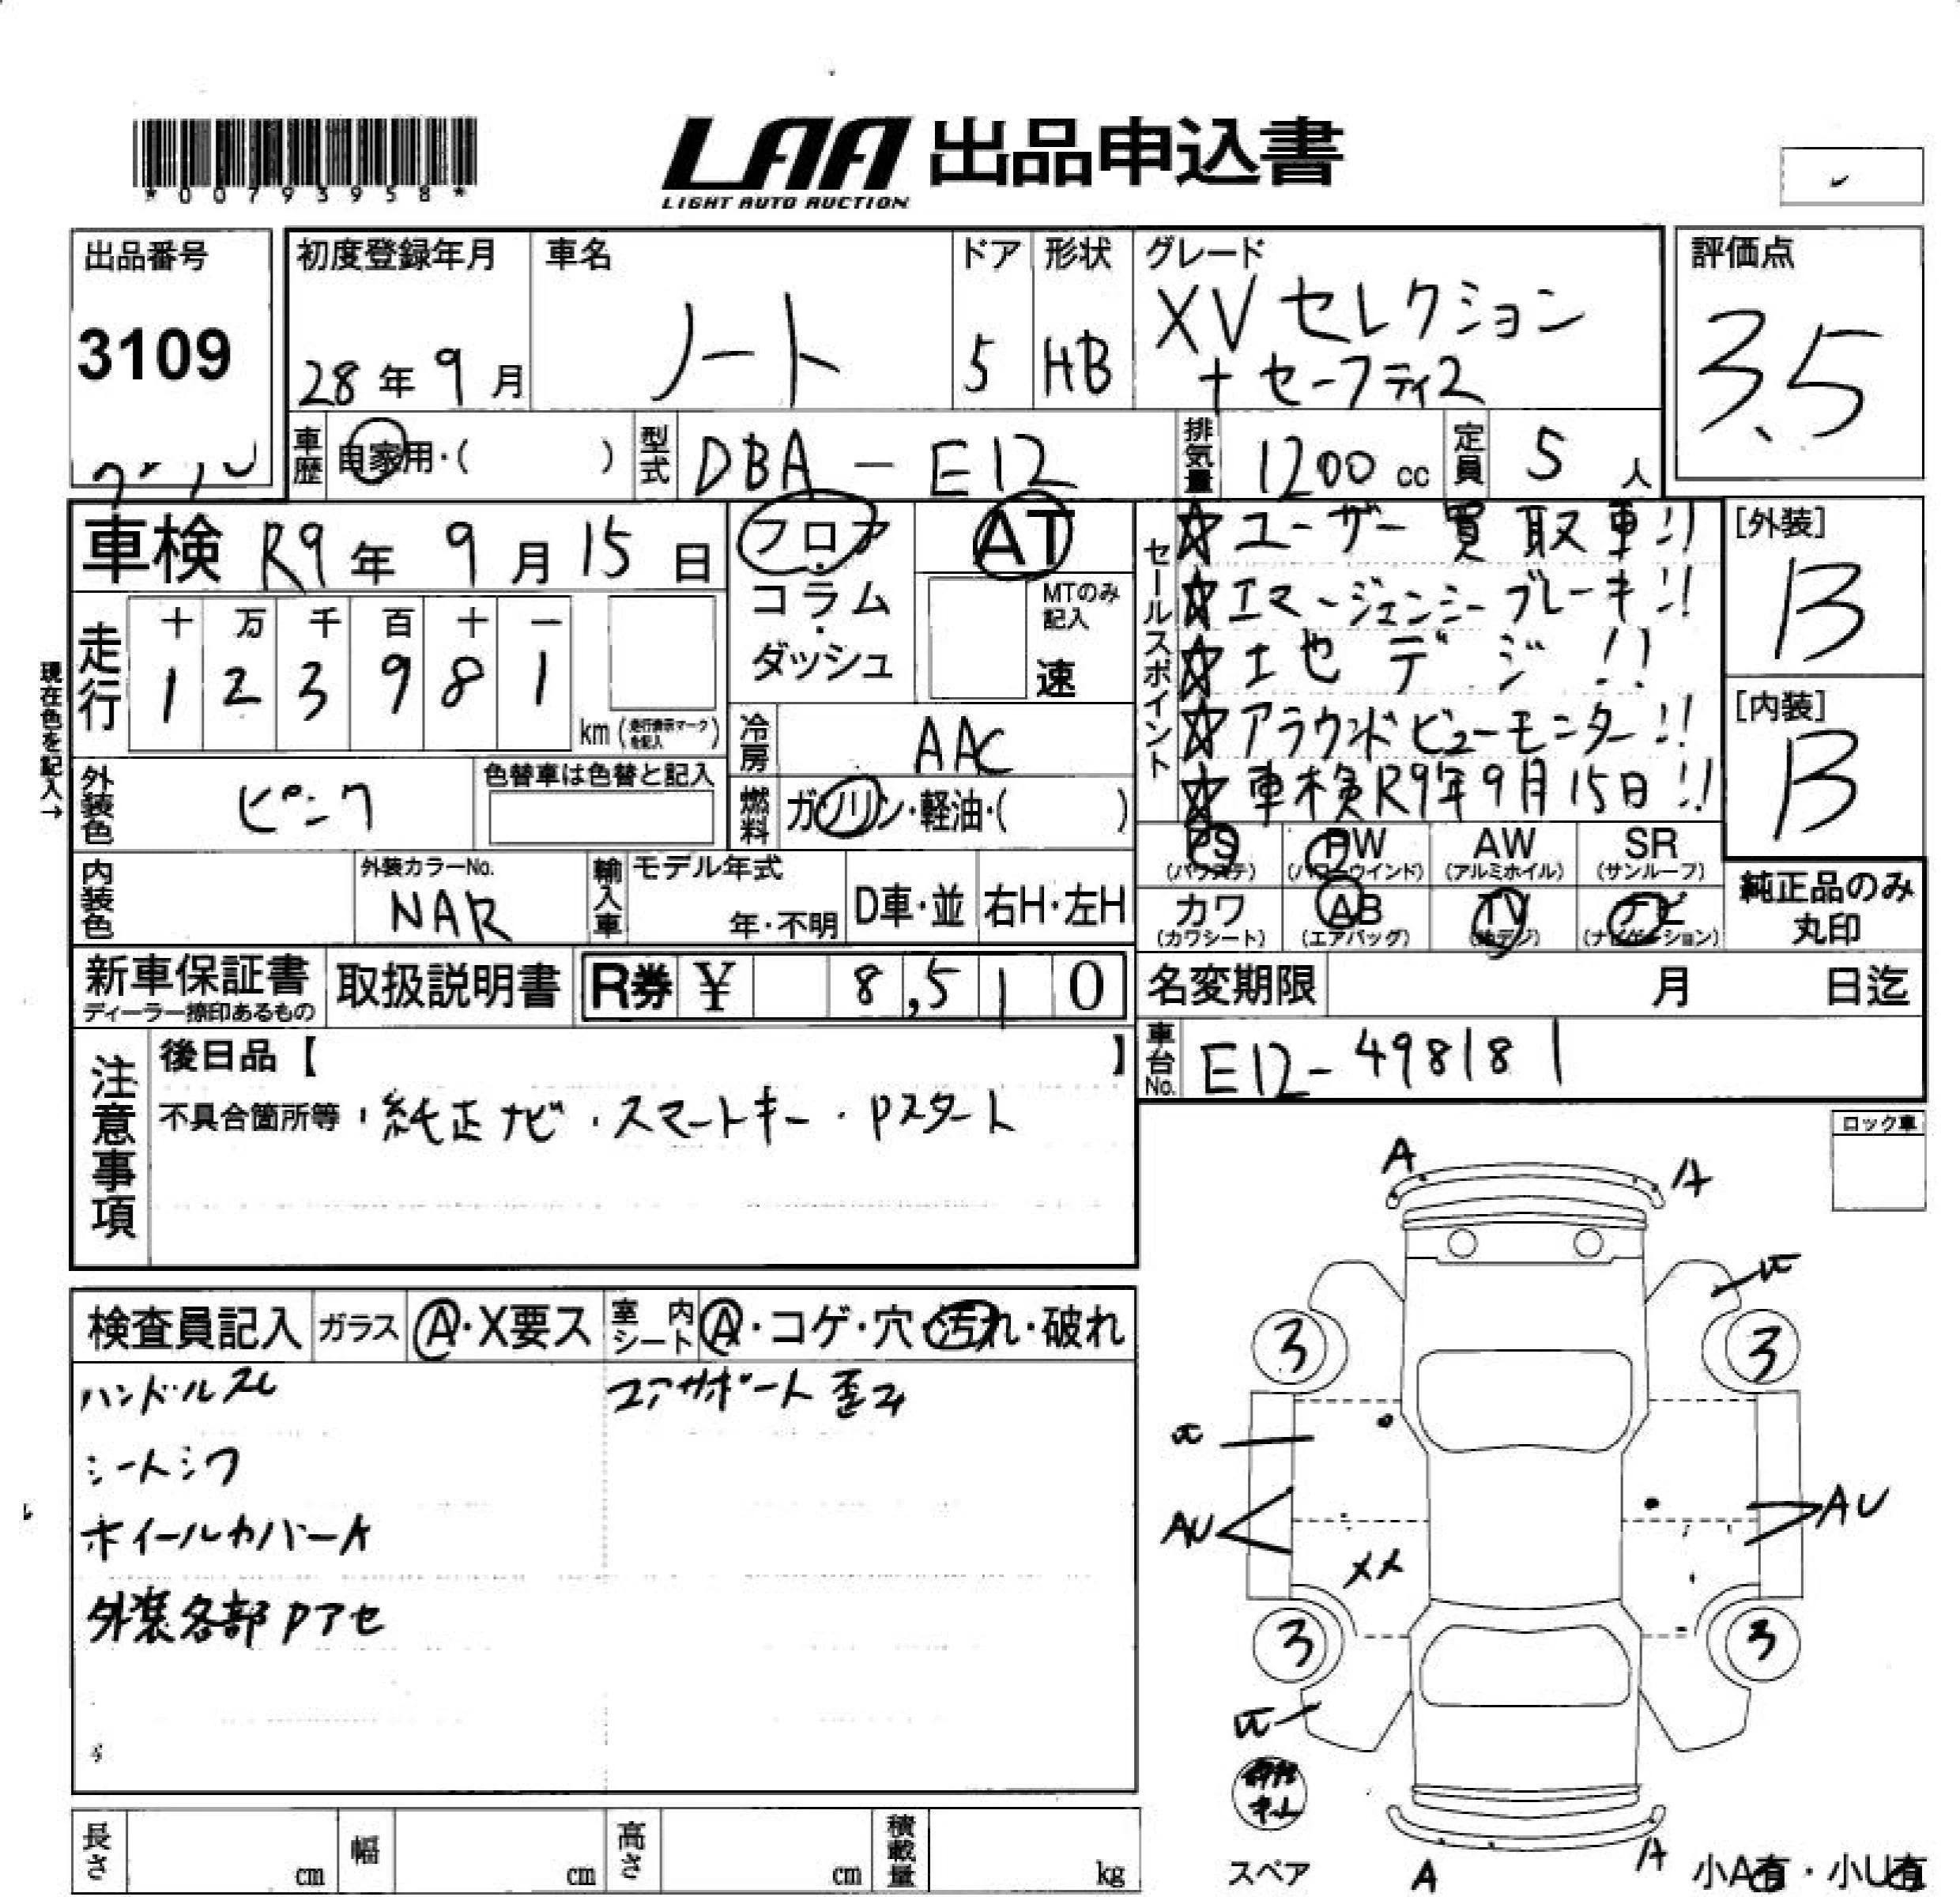 *00793958*
LAA 出品申込書
LIGHT AUTO AUCTION
出品番号
3109
初度登録年月
28年9月
車名
ノート
ドア
5
形状
HB
グレード
XVセレクション
+セーフティ2
評価点
3.5
車歴
自家用・( )
型式
DBA-E12
排気量
1200cc
定員
5人
車検 R9年9月15日
フロア・コラム・ダッシュ
AT
MTのみ記入
速
走行
十 万 千 百 十 一
1 2 3 9 8 1
km(走行表示マークを記入)
現在色を記入→
冷房
AAC
外装色
ピンク
色替車は色替と記入
燃料
ガソリン・軽油・( )
内装色
外装カラーNo.
NAR
輸入車
モデル年式
年・不明
D車・並
右H・左H
セールスポイント
☆ユーザー買取車!!
☆エマージェンシーブレーキ!!
☆土也デジ!!
☆アラウンドビューモニター!!
☆車検R9年9月15日!!
[外装]
B
[内装]
B
PS
(パワステ)
PW
(パワーウインド)
AW
(アルミホイル)
SR
(サンルーフ)
カワ
(カワシート)
AB
(エアバッグ)
TV
(地デジ)
ナビ
(ナビゲーション)
純正品のみ
丸印
新車保証書
ディーラー捺印あるもの
取扱説明書
R券 ¥ 8,510
名変期限 月 日迄
車台No.
E12-498181
注意事項
後日品【 】
不具合箇所等・純正ナビ・スマートキー・Pスタート
ロック車
検査員記入
ガラス
A・X要ス
室内シート
A・コゲ・穴・汚れ・破れ
ハンドルスレ
コアサポート歪み
シートシワ
ホイールカバーA
外装各部Pアセ
A
A
3
3
AU
AU
XX
3
3
A
A
スペア
小A有・小U有
長さ cm
幅 cm
高さ cm
積載量 kg